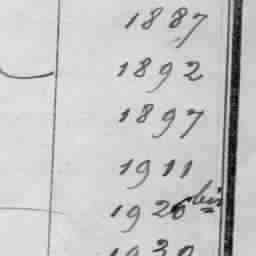 1887
1892
1897
1911
1926 bis
1930